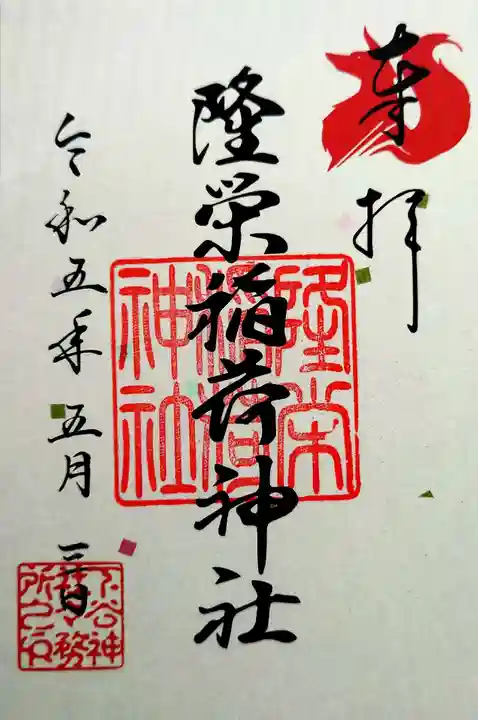 奉拝
隆栄稲荷神社
隆栄稲荷神社
令和五年五月三日
下谷神社社務所之印